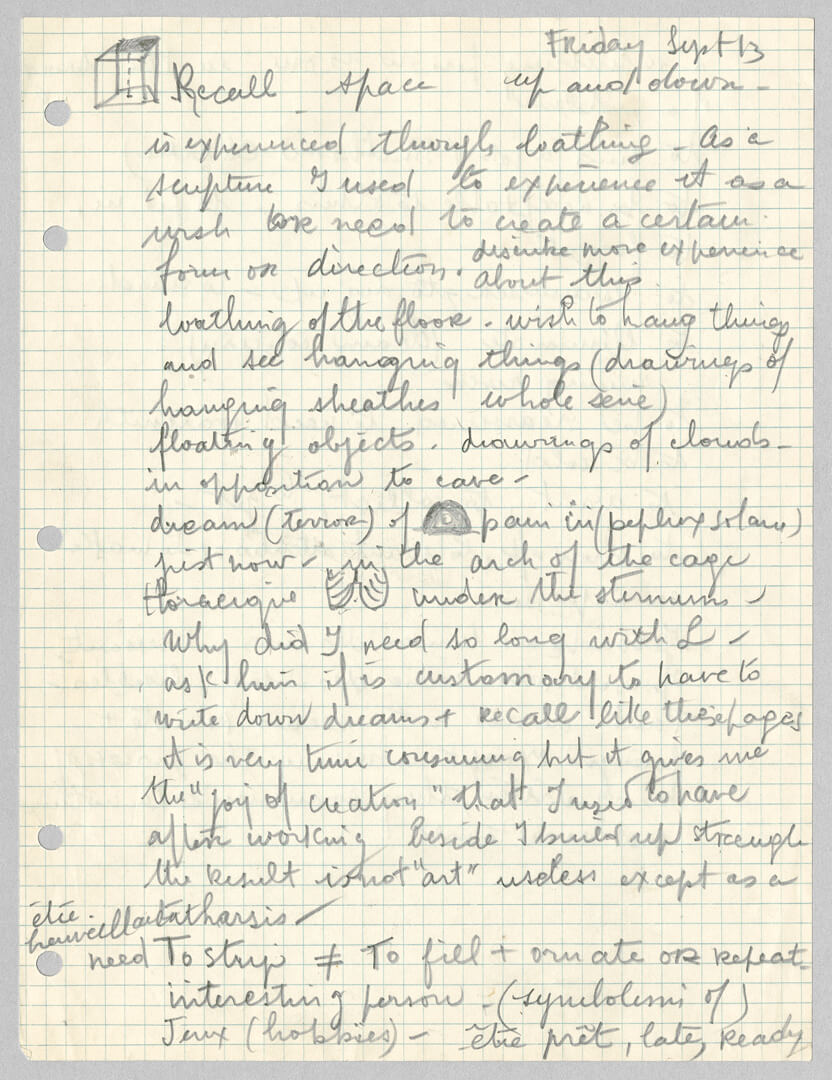 Friday Sept 13
Recall space up and down -
is experienced through loathing - As a
sculpture I used to experience it as a
wish or need to create a certain
form or direction. more experience
about this
loathing of the floor - wish to hang things
and see hanging things (drawings of
hanging sheathes whole serie)
floating objects. drawings of clouds -
in opposition to cave -
dream (terror) of pain in (
just now - in the arch of the cage
toracique under the sternum -
Why did I need so long with L -
ask him if is customary to have to
write down dreams + recall like these pages
it is very time consuming but it gives me
the "joy of creation" that I used to have
after working beside I build up
the result is not "art" useless except as a
être
catharsis -
need To strip ≠ To fill + ornate or repeat -
interesting person - (symbolism of)
Jeux (hobbies) - être prêt, late, ready